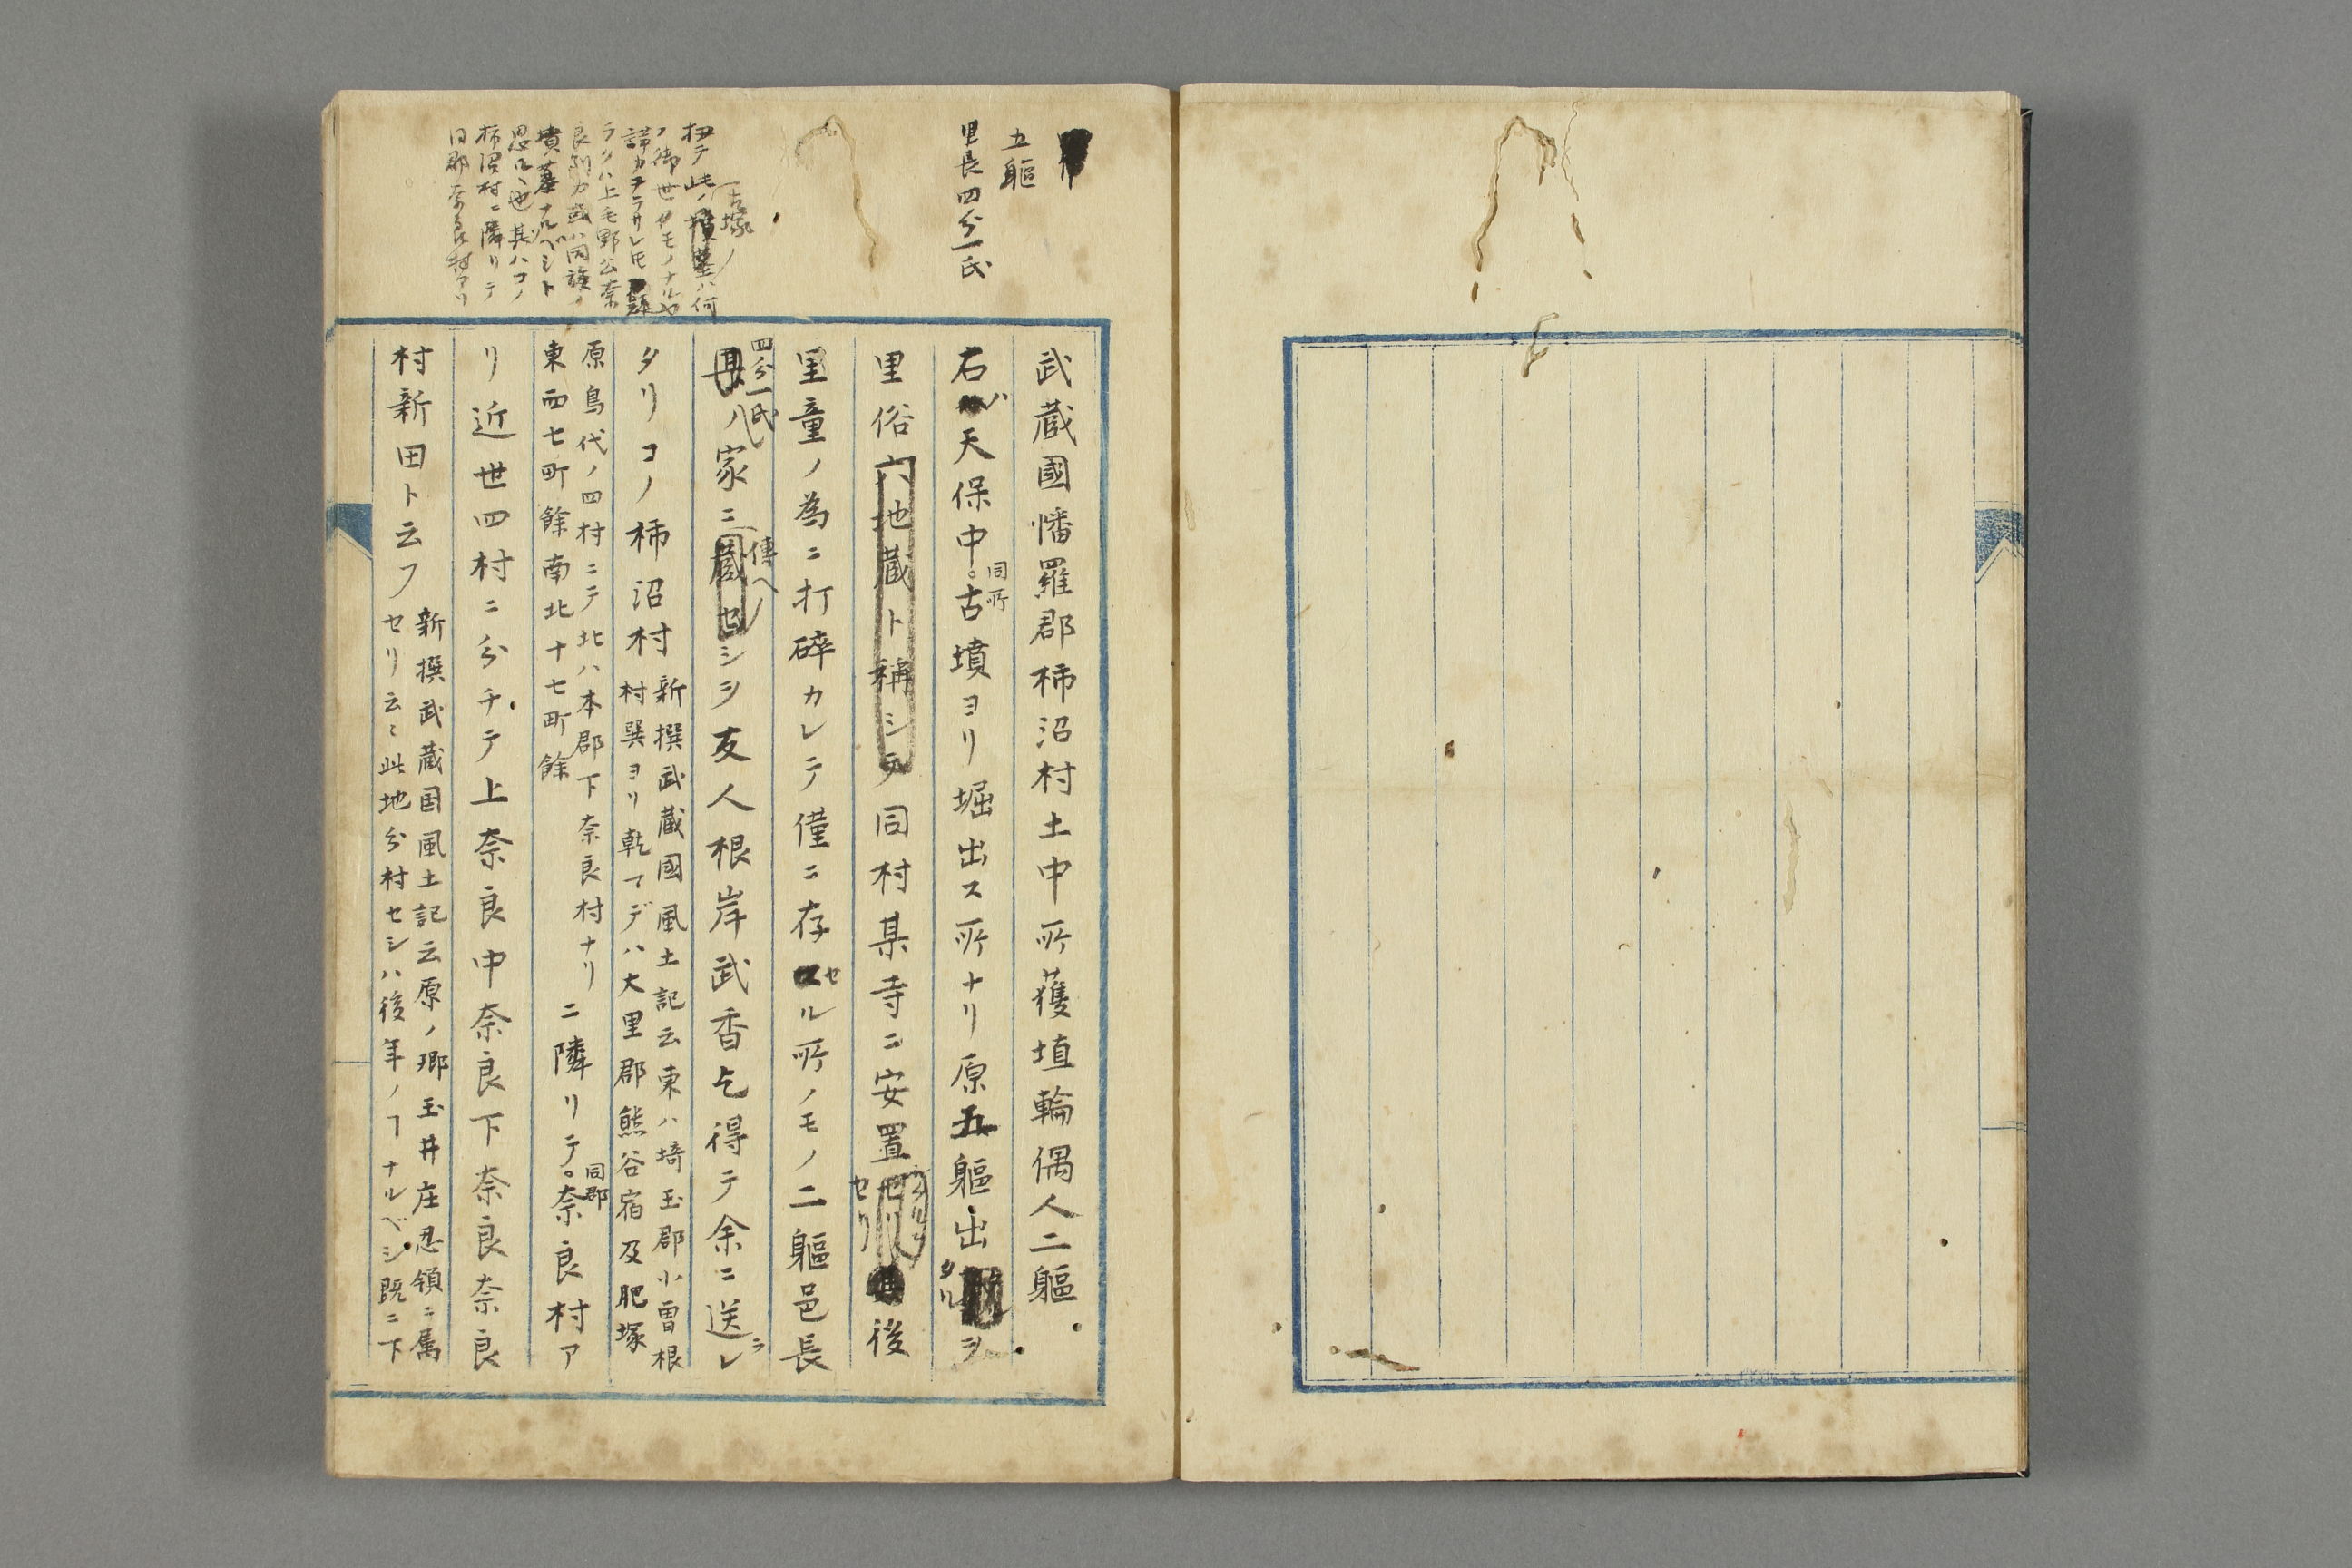 五軀
里長四分一氏
古塚ノ
抑テ此ノ墳墓ハ何
ノ御世ノモノナルヤ
諦カナラサレ𪜈
ラクハ上毛野公奈
良別カ或ハ同族ノ
墳墓ナルベシト
思ハル也其ハコノ
柿沼村ニ隣リテ
同郡奈良村アリ
武蔵國幡羅郡柿沼村土中所獲埴輪偶人二軀
右ハ天保中同所古墳ヨリ堀出ス所ナリ原五軀出タルヲ
里俗六地蔵ト稱シテ同村某寺ニ安置セリ後
里童ノ為ニ打碎カレテ僅ニ存セル所ノモノ二軀邑長
四分一氏ノ家ニ傳ヘシヲ友人根岸武香乞得テ余ニ送ラレ
タリコノ柿沼村
新撰武蔵國風土記云東ハ埼玉郡小曽根
村巽ヨリ乾マデハ大里郡熊谷宿及肥塚
原島代ノ四村ニテ北ハ本郡下奈良村ナリ
東西七町餘南北十七町餘
ニ隣リテ同郡奈良村ア
リ近世四村ニ分チテ上奈良中奈良下奈良奈良
村新田ト云フ
新撰武蔵国風土記云原ノ郷玉井庄忍領ニ属
セリ云〻此地分村セシハ後年ノヿナルベシ既ニ下